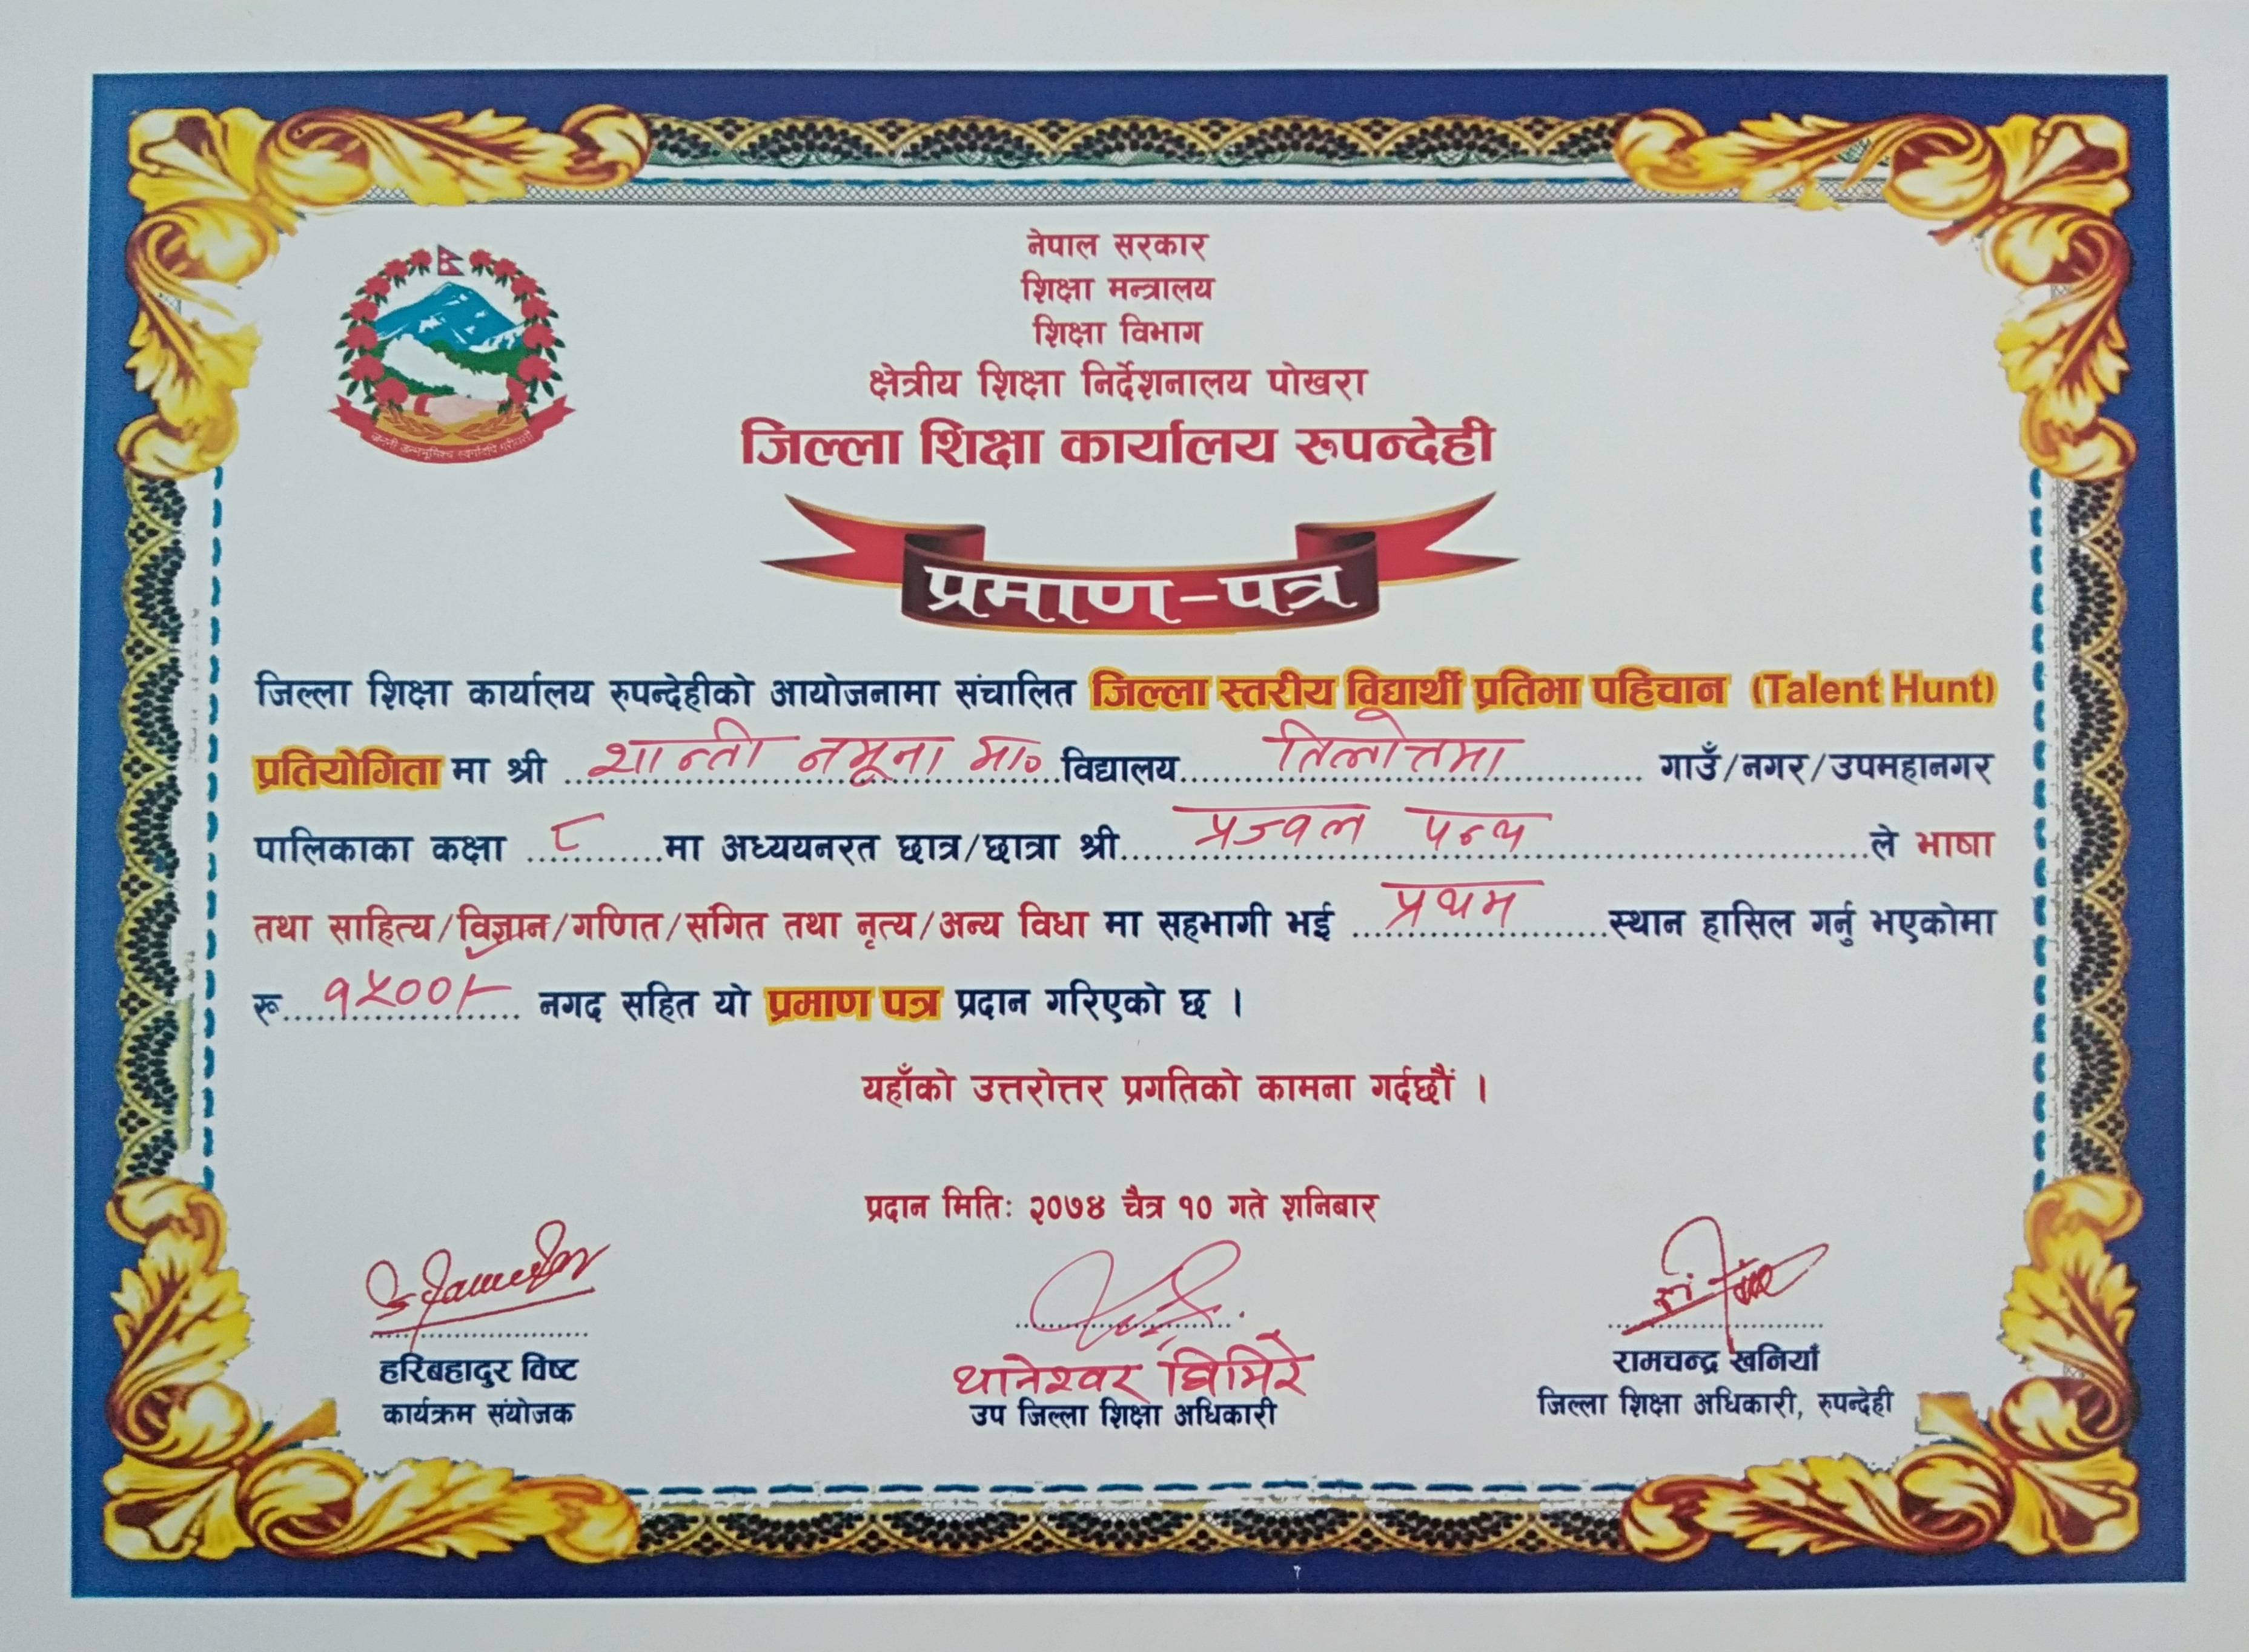 नेपाल सरकार
शिक्षा मन्त्रालय
शिक्षा विभाग
क्षेत्रीय शिक्षा निर्देशनालय पोखरा
जिल्ला शिक्षा कार्यालय रुपन्देही
जननी जन्मभूमिश्च स्वर्गादपि गरीयसी
प्रमाण-पत्र
जिल्ला शिक्षा कार्यालय रुपन्देहीको आयोजनामा संचालित जिल्ला स्तरीय विद्यार्थी प्रतिभा पहिचान (Talent Hunt)
प्रतियोगिता मा श्री शान्ती नमूना मा० विद्यालय तिलोत्तमा गाउँ/नगर/उपमहानगर
पालिकाका कक्षा ८ मा अध्ययनरत छात्र/छात्रा श्री प्रज्वल पन्थ ले भाषा
तथा साहित्य/विज्ञान/गणित/संगित तथा नृत्य/अन्य विधा मा सहभागी भई प्रथम स्थान हासिल गर्नु भएकोमा
रू १५००/- नगद सहित यो प्रमाण पत्र प्रदान गरिएको छ ।
यहाँको उत्तरोत्तर प्रगतिको कामना गर्दछौं ।
प्रदान मितिः २०७४ चैत्र १० गते शनिबार
हरिबहादुर विष्ट
कार्यक्रम संयोजक
थानेश्वर घिमिरे
उप जिल्ला शिक्षा अधिकारी
रामचन्द्र खनियाँ
जिल्ला शिक्षा अधिकारी, रुपन्देही